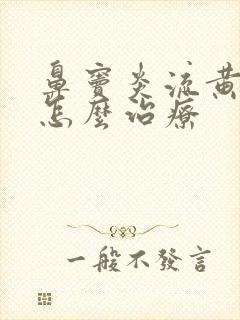 鼻竇炎流黃
怎麼治療
一般不發言